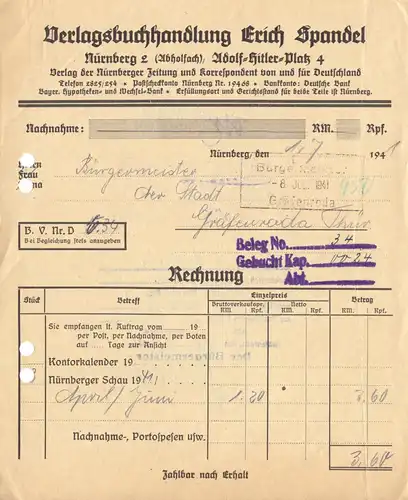 Verlagsbuchhandlung Erich Spandel
Nürnberg 2 (Abholfach), Adolf-Hitler-Platz 4
Verlag der Nürnberger Zeitung und Korrespondent von und für Deutschland
Telefon 2525/254 • Postscheckkonto Nürnberg Nr. 19468 • Bankkonto: Deutsche Bank
Bayer. Hypotheken- und Wechsel-Bank • Erfüllungsort und Gerichtsstand für beide Teile ist Nürnberg.
Nachnahme: RM. Rpf.
Nürnberg, den 1.7. 1941
Frau
Bürgermeister
8. JUL. 1941
der Stadt
Gräfenroda
Gräfenroda Thür
B. V. Nr. D 634
Bei Begleichung stets anzugeben
Beleg No. 34
Gebucht Kap. 00-24
Abt.
Rechnung
Stück Betreff Einzelpreis Betrag
Bruttoverkaufspr. Netto
RM. Rpf. RM. Rpf. RM. Rpf.
Sie empfangen lt. Auftrag vom 19
per Post, per Nachnahme, per Boten
auf Tage zur Ansicht
Kontorkalender 19
Nürnberger Schau 1941
April/Juni 1.20 3.60
Nachnahme-, Portospesen usw.
3.60
Zahlbar nach Erhalt